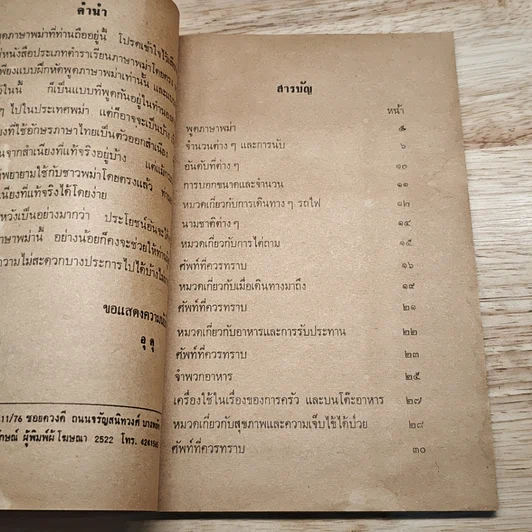 คำนำ
พูดภาษาพม่าที่ท่านถืออยู่นี้ โปรดเข้าใจไว้
หนังสือประเภทตำราเรียนภาษาพม่าโดยตรง
เพียงแบบฝึกหัดพูดภาษาพม่าเท่านั้น
ไว้ในนี้ ก็เป็นแบบที่พูดกันอยู่ใน
ๆ ไปในประเทศพม่า แต่ก็อาจจะเป็น
ที่ใช้อักษรภาษาไทยเป็นตัวออกสำเนียง
จากสำเนียงที่แท้จริงอยู่บ้าง
พยายามใช้กับชาวพม่าโดยตรงแล้ว
เนียงที่แท้จริงได้โดยง่าย
หวังเป็นอย่างมากว่า ประโยชน์อัน
ภาษาพม่านี้ อย่างน้อยก็คงจะช่วยให้
ความไม่สะดวกบางประการไปได้บ้าง
ขอแสดงความ
อุ ดุ
11/76 ซอยดวงดี ถนนจรัญสนิทวงศ์
ผู้พิมพ์ผู้โฆษณา 2522 โทร.
สารบัญ
หน้า
พูดภาษาพม่า ๕
จำนวนต่าง ๆ และการนับ ๖
อันดับที่ต่าง ๆ ๑๐
การบอกขนาดและจำนวน ๑๑
หมวดเกี่ยวกับการเดินทาง ๆ รถไฟ ๑๒
นามชาติต่าง ๆ ๑๔
หมวดเกี่ยวกับการไต่ถาม ๑๕
ศัพท์ที่ควรทราบ ๑๖
หมวดเกี่ยวกับเมื่อเดินทางมาถึง ๑๙
ศัพท์ที่ควรทราบ ๒๑
หมวดเกี่ยวกับอาหารและการรับประทาน ๒๒
ศัพท์ที่ควรทราบ ๒๓
จำพวกอาหาร ๒๕
เครื่องใช้ในเรื่องของการครัว และบนโต๊ะอาหาร ๒๗
หมวดเกี่ยวกับสุขภาพและความเจ็บไข้ได้ป่วย ๒๘
ศัพท์ที่ควรทราบ ๓๐